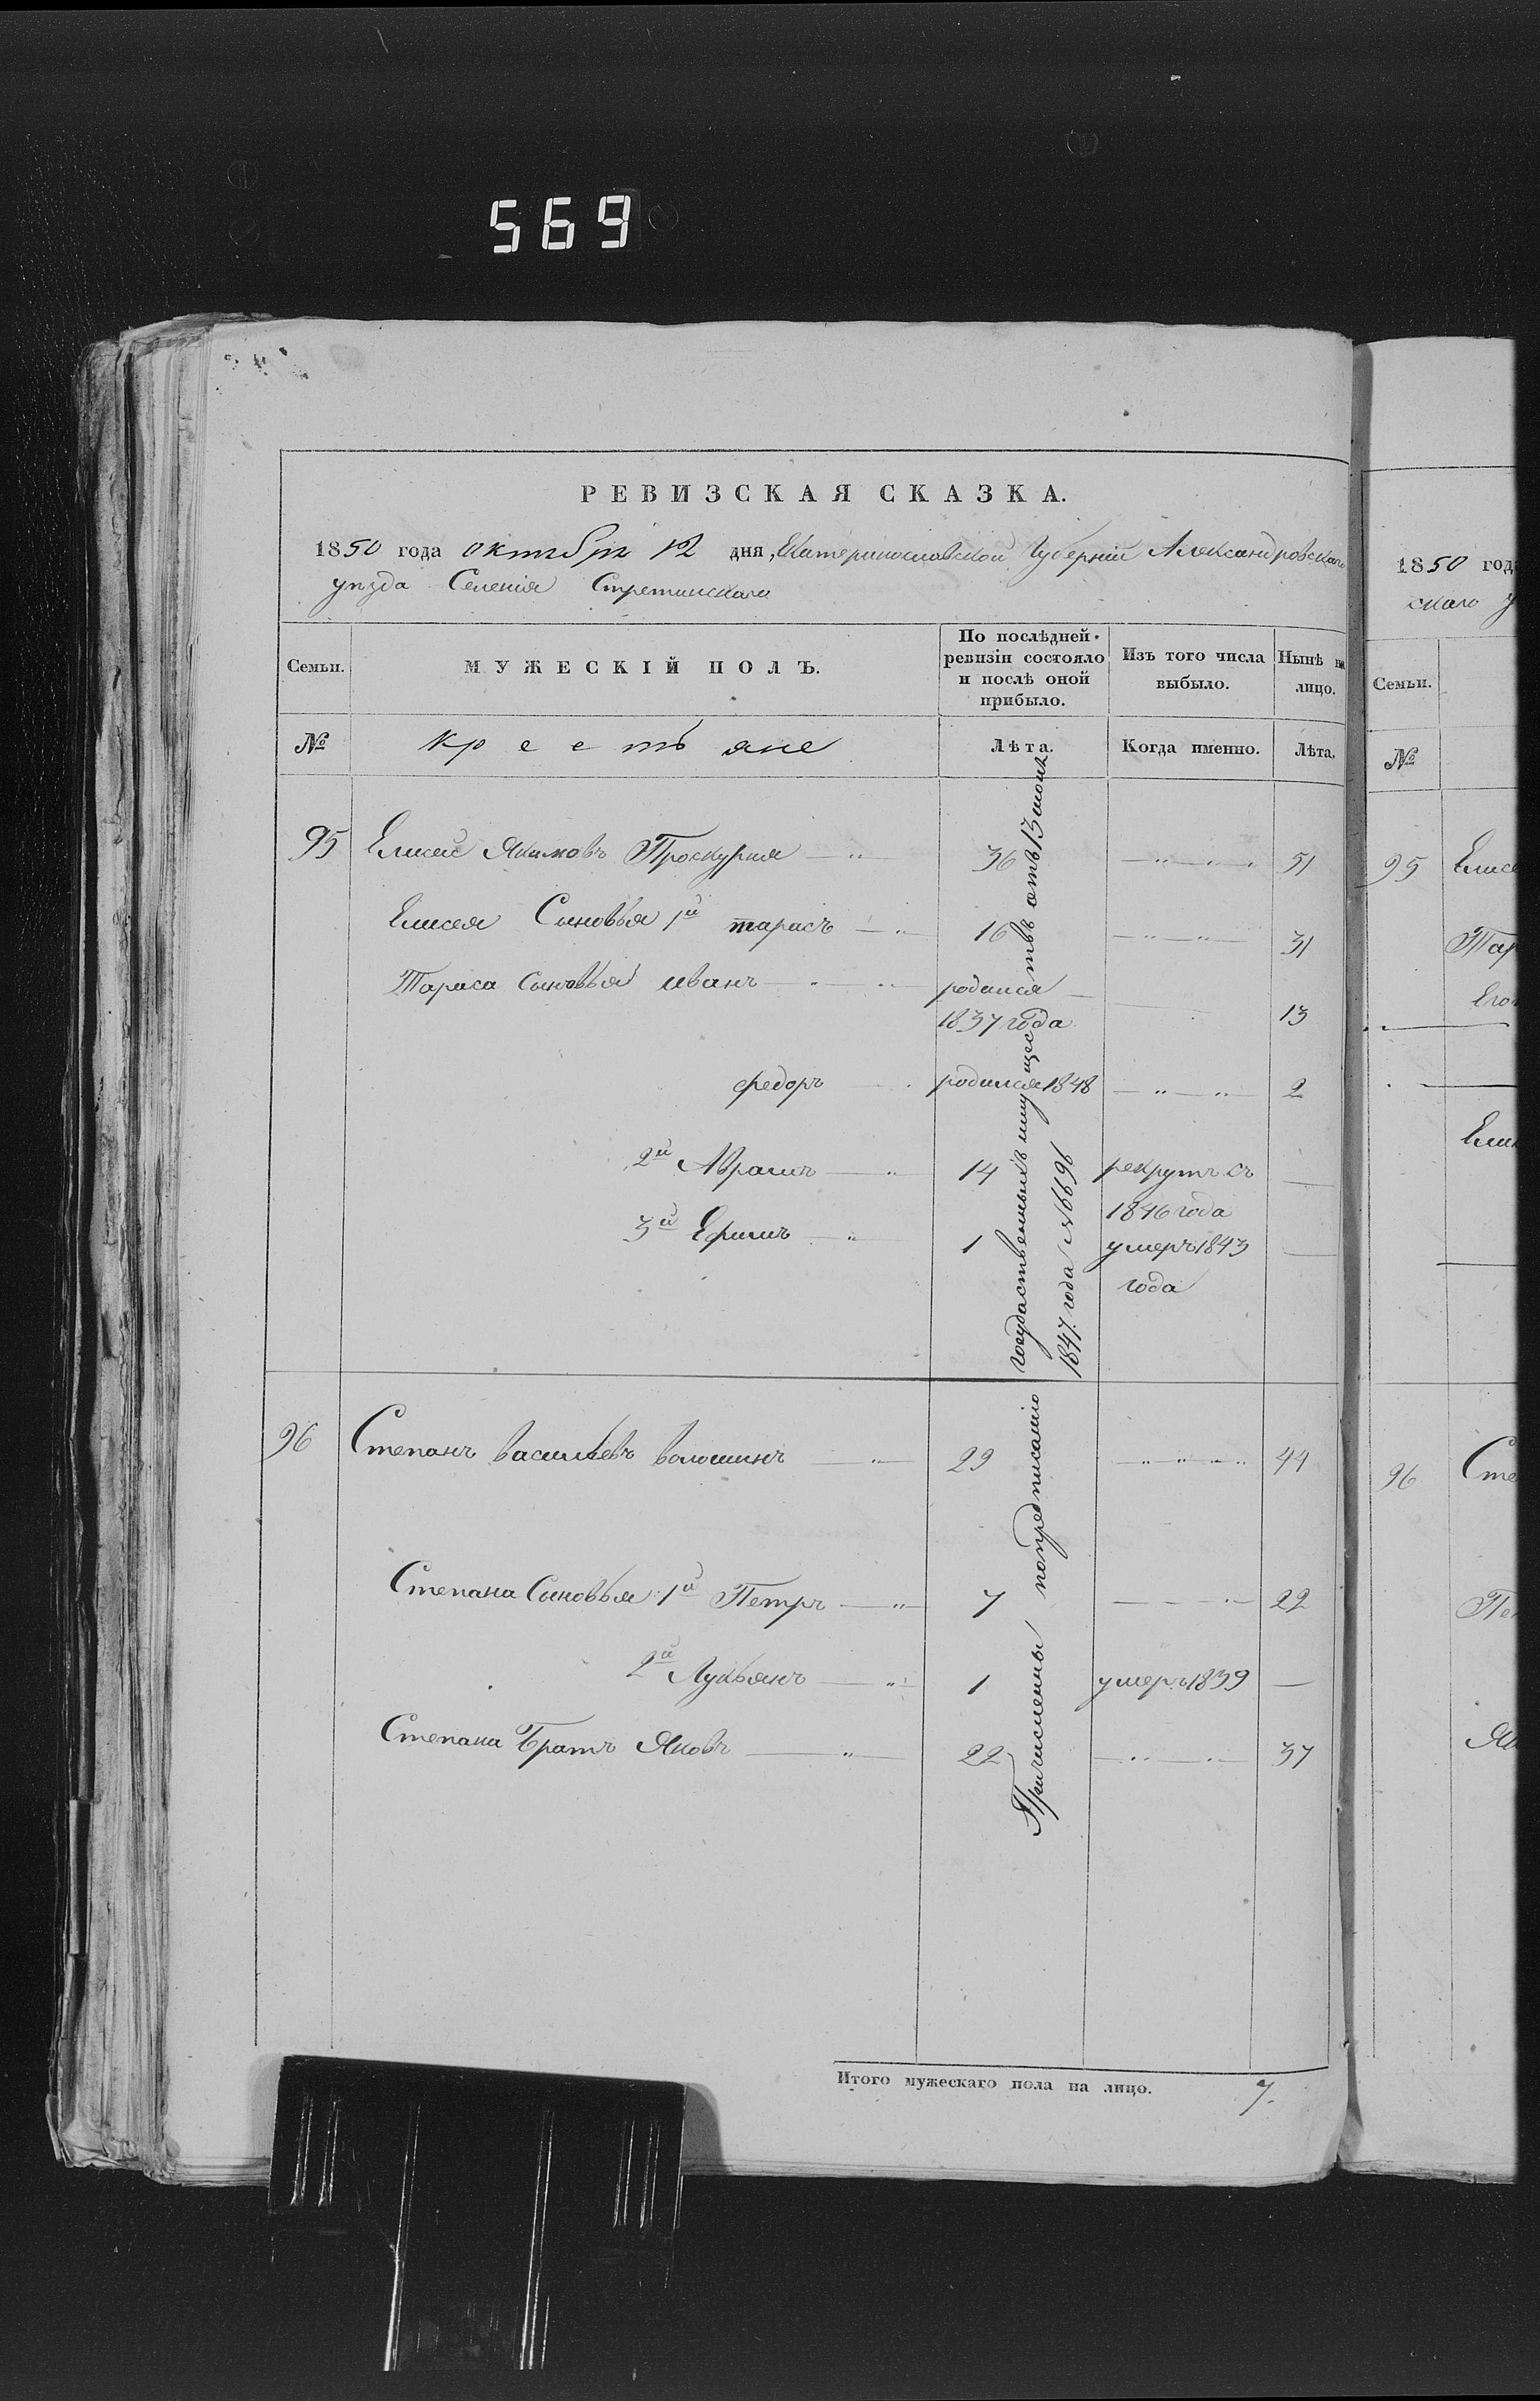 569
РЕВИЗСКАЯ СКАЗКА.
1850 года октября 12 дня, Екатеринославской Губерніи Александровскаго
уѣзда Селенія Стретинскаго
Семьи. МУЖЕСКІЙ ПОЛЪ. По послѣдней ревизіи состояло и послѣ оной прибыло. Изъ того числа выбыло. Нынѣ на лицо.
№ крестьяне Лѣта. Когда именно. Лѣта.
95 Елисей Якимовъ Проскурня — " 36 — " — " — " 51
Елисея Сыновья 1й тарасъ — " — 16 — " — " — 31
Тараса Сыновья иванъ — " — " — родился — 13
1837 года
федоръ — родился 1848 — " — " — 2
2й Абрамъ — " 14 рекрутъ съ —
1846 года
3й Ефимъ — " — 1 умеръ 1843 —
года
96 Степанъ васильевъ волошинъ — " — 29 — " — " — " 44
Степана Сыновья 1й Петръ — " — 7 — — " — 22
2й Лукьянъ — " — 1 умеръ 1839 —
Степана Братъ Яковъ — " — 22 — " — " — 37
Причисленны попредписанію государственныхъ имуществъ отъ 13 июня
1847. года № 6696
Итого мужескаго пола на лицо. 7.
1850 год
скаго у
Семьи.
№
95 Елисе
Тар
Его
96 Сте
Пе
Як